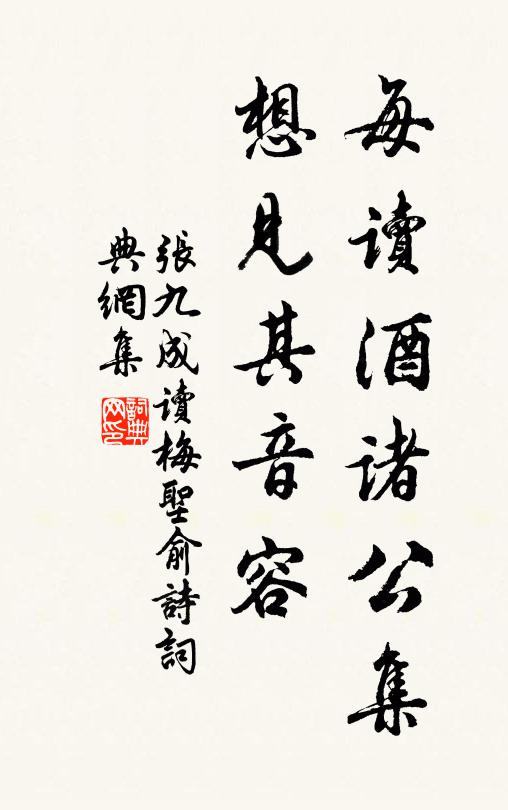 每讀酒諸公集
想見其音容
張九成讀梅聖俞詩詞
典網集
詞典
网印